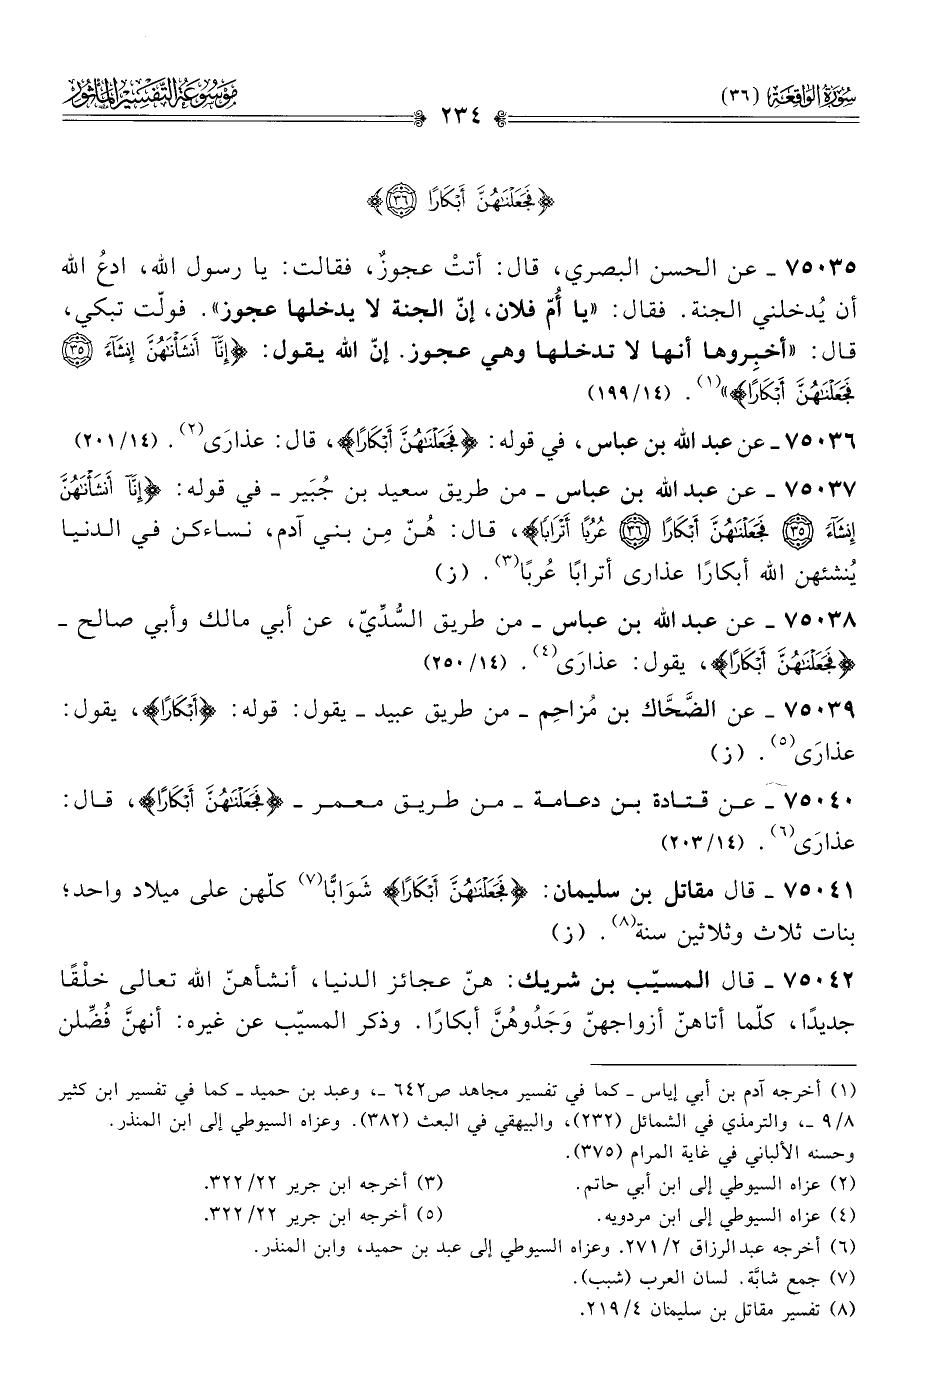 سورة الواقعة (٣٦)
٢٣٤
موسوعة التفسير المأثور
﴿فَجَعَلْنَٰهُنَّ أَبْكَارًا ٣٦﴾
٧٥٠٣٥ ـ عن الحسن البصري، قال: أتتْ عجوزٌ، فقالت: يا رسول الله، ادعُ الله
أن يُدخلني الجنة. فقال: «يا أُمّ فلان، إنّ الجنة لا يدخلها عجوز». فولّت تبكي،
قال: «أخبِروها أنها لا تدخلها وهي عجوز. إنّ الله يقول: ﴿إِنَّآ أَنشَأْنَٰهُنَّ إِنشَآءً ٣٥
فَجَعَلْنَٰهُنَّ أَبْكَارًا﴾»(١). (١٤/ ١٩٩)
٧٥٠٣٦ ـ عن عبد الله بن عباس، في قوله: ﴿فَجَعَلْنَٰهُنَّ أَبْكَارًا﴾، قال: عذارَى(٢). (١٤/ ٢٠١)
٧٥٠٣٧ ـ عن عبد الله بن عباس ـ من طريق سعيد بن جُبَير ـ في قوله: ﴿إِنَّآ أَنشَأْنَٰهُنَّ
إِنشَآءً ٣٥ فَجَعَلْنَٰهُنَّ أَبْكَارًا ٣٦ عُرُبًا أَتْرَابًا﴾، قال: هُنّ مِن بني آدم، نساءكن في الدنيا
يُنشئهن الله أبكارًا عذارى أترابًا عُربًا(٣). (ز)
٧٥٠٣٨ ـ عن عبد الله بن عباس ـ من طريق السُّدِّيّ، عن أبي مالك وأبي صالح ـ
﴿فَجَعَلْنَٰهُنَّ أَبْكَارًا﴾، يقول: عذارَى(٤). (١٤/ ٢٥٠)
٧٥٠٣٩ ـ عن الضَّحَّاك بن مُزاحِم ـ من طريق عبيد ـ يقول: قوله: ﴿أَبْكَارًا﴾، يقول:
عذارَى(٥). (ز)
٧٥٠٤٠ ـ عن قتادة بن دعامة ـ من طريق معمر ـ ﴿فَجَعَلْنَٰهُنَّ أَبْكَارًا﴾، قال:
عذارَى(٦). (١٤/ ٢٠٣)
٧٥٠٤١ ـ قال مقاتل بن سليمان: ﴿فَجَعَلْنَٰهُنَّ أَبْكَارًا﴾ شَوَابًّا(٧) كلّهن على ميلاد واحد؛
بنات ثلاث وثلاثين سنة(٨). (ز)
٧٥٠٤٢ ـ قال المسيّب بن شريك: هنّ عجائز الدنيا، أنشأهنّ الله تعالى خلْقًا
جديدًا، كلّما أتاهنّ أزواجهنّ وَجَدُوهُنَّ أبكارًا. وذكر المسيّب عن غيره: أنهنَّ فُضِّلن
(١) أخرجه آدم بن أبي إياس ـ كما في تفسير مجاهد ص٦٤٢ ـ، وعبد بن حميد ـ كما في تفسير ابن كثير
٨/ ٩ ـ، والترمذي في الشمائل (٢٣٢)، والبيهقي في البعث (٣٨٢). وعزاه السيوطي إلى ابن المنذر.
وحسنه الألباني في غاية المرام (٣٧٥).
(٢) عزاه السيوطي إلى ابن أبي حاتم. (٣) أخرجه ابن جرير ٢٢/ ٣٢٢.
(٤) عزاه السيوطي إلى ابن مردويه. (٥) أخرجه ابن جرير ٢٢/ ٣٢٢.
(٦) أخرجه عبد الرزاق ٢/ ٢٧١. وعزاه السيوطي إلى عبد بن حميد، وابن المنذر.
(٧) جمع شابَّة. لسان العرب (شبب).
(٨) تفسير مقاتل بن سليمان ٤/ ٢١٩.